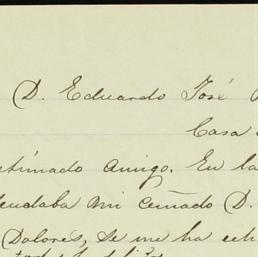 D. Eduardo José
Casa
Estimado amigo. En la
adeudaba mi cuñado D.
Dolores, se me ha ech